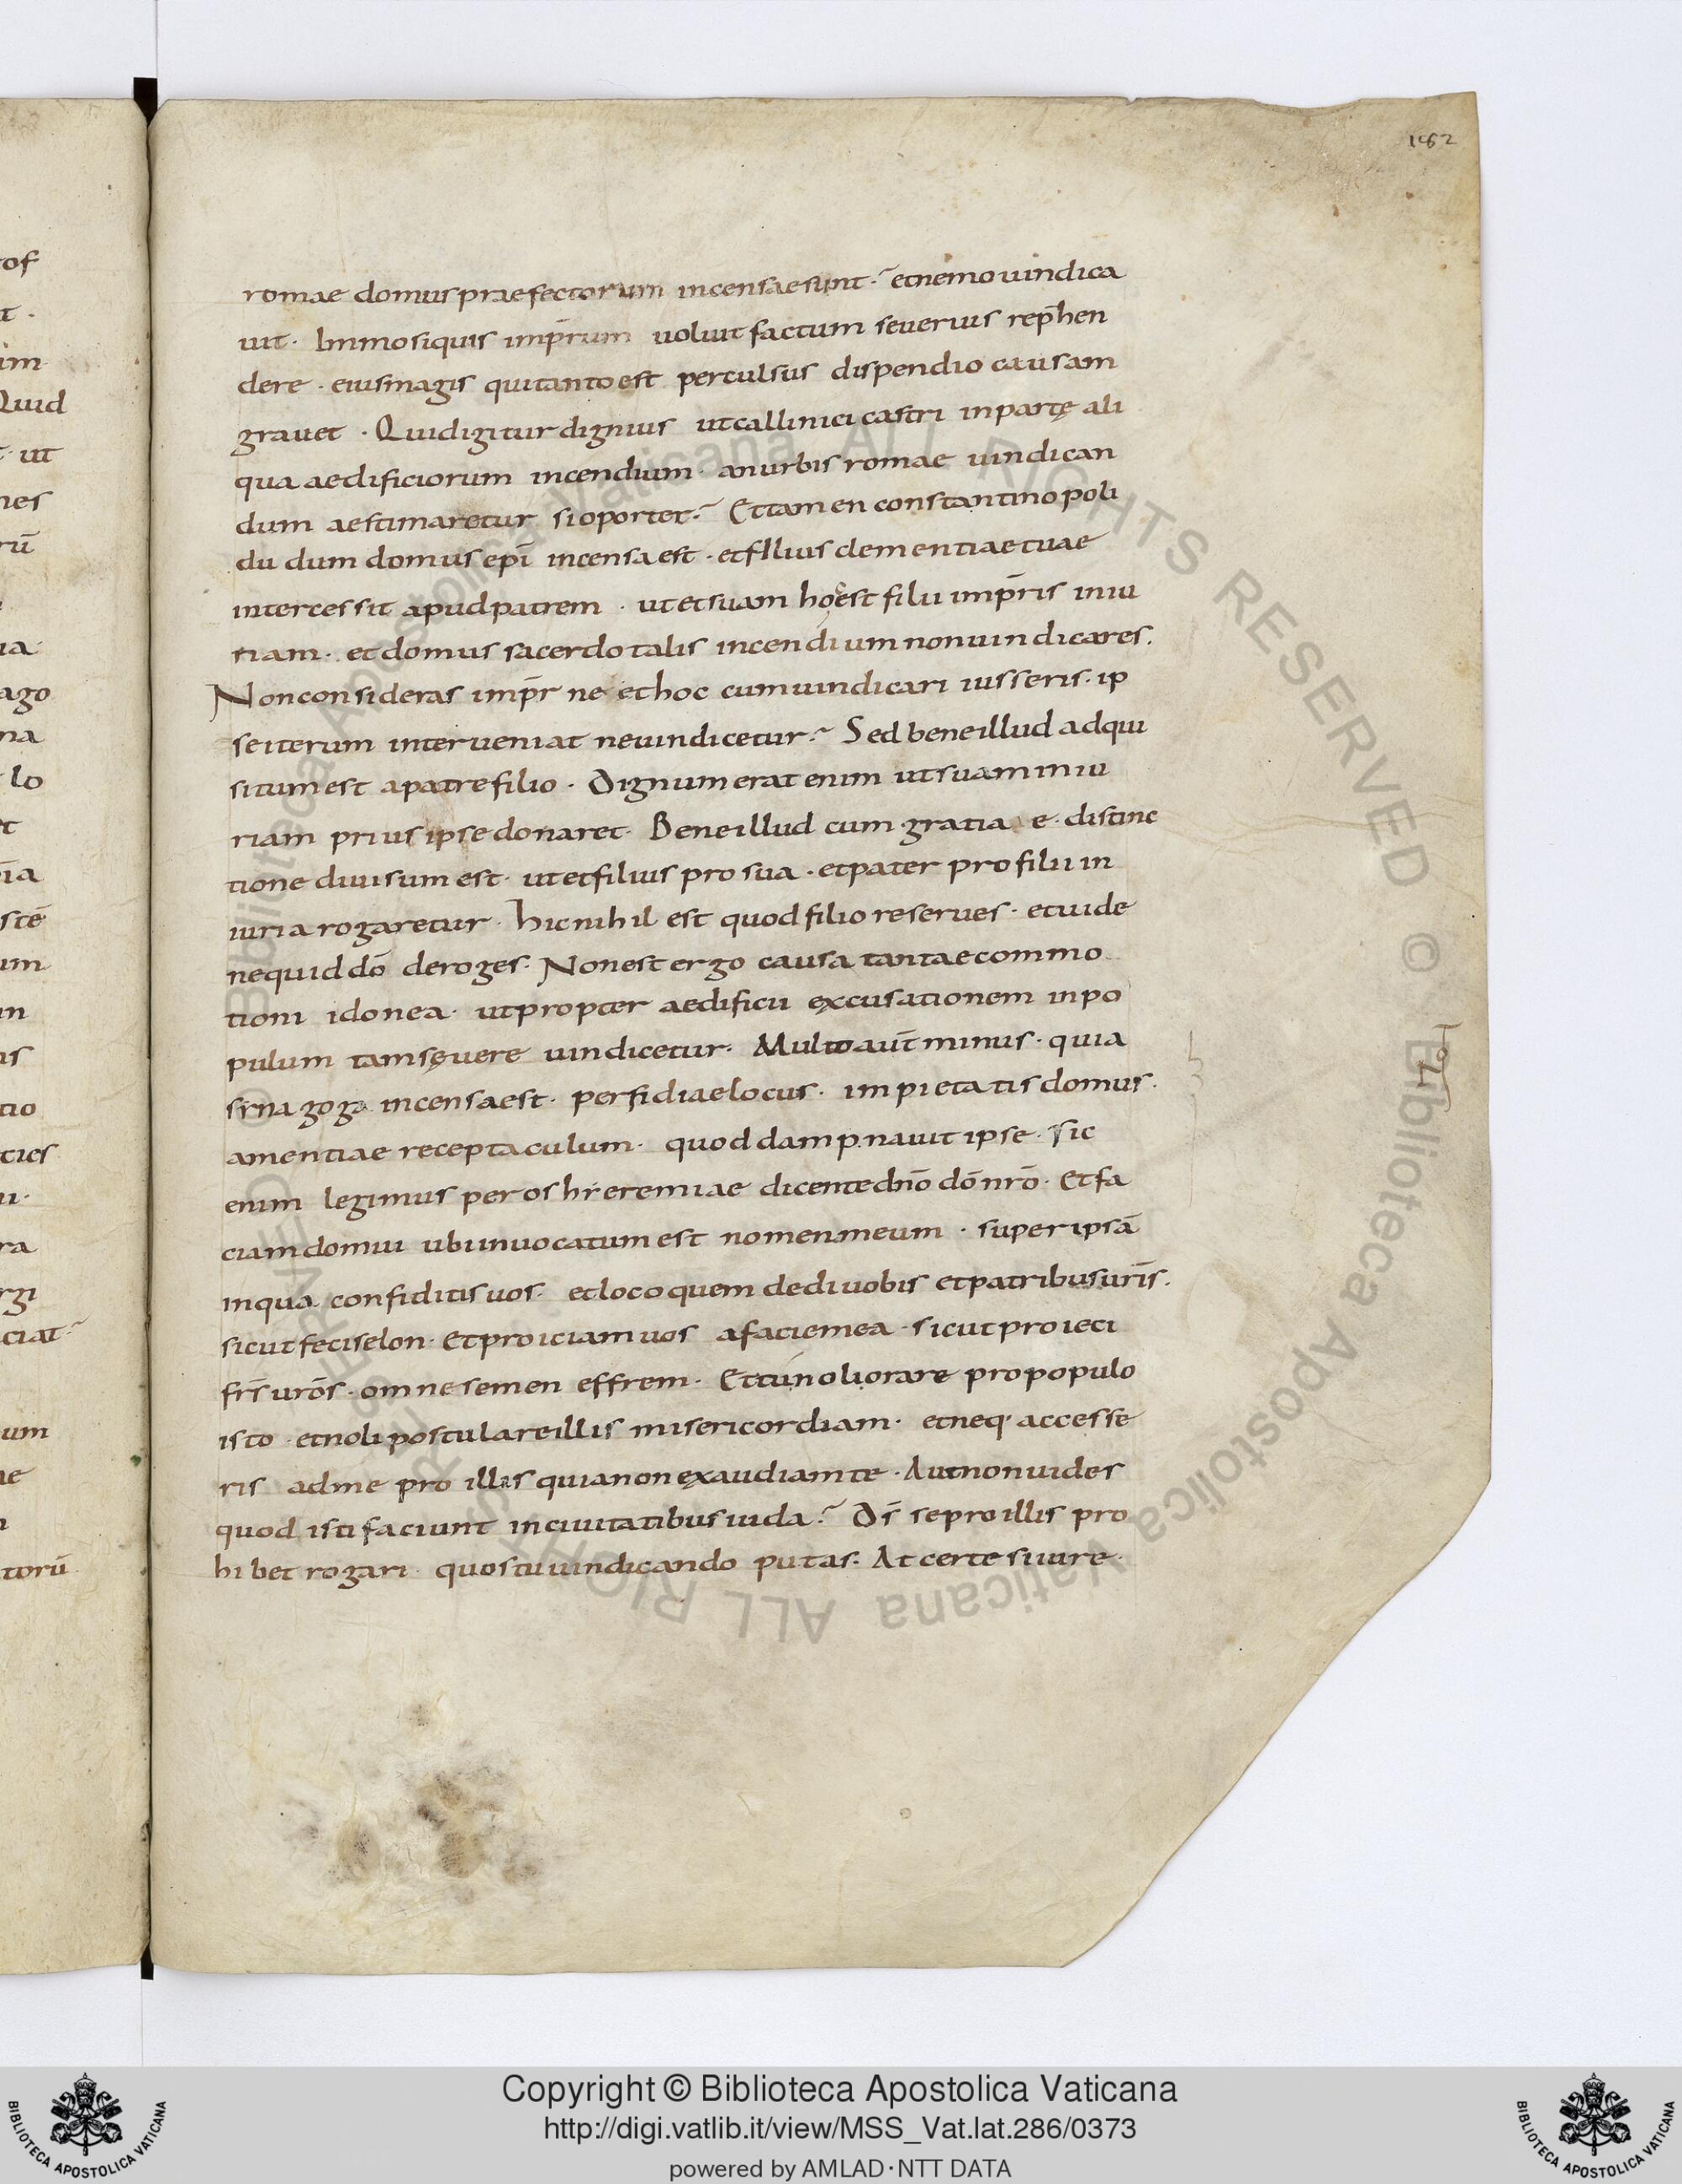 182
romae domus praefectorum incensae sunt. et nemo uindica
uit. Immo siquis imp̄rum uoluit factum seuerius rep̄hen
dere. eius magis qui tanto est perculsus dispendio causam
grauet. Quid igitur dignius ut callinici castri in partę ali
qua aedificiorum incendium. an urbis romae uindican
dum aestimaretur si oportet? Et tamen constantinopoli
du dum domus epī incensa est. et fllius clementiae tuae
intercessit apud patrem. ut et suam hoc est filii imp̄ris iniu
riam. et domus sacerdotalis incendium non uindicares.
Non consideras imp̄r ne et hoc cum uindicari iusseris. ip
se iterum interueniat ne uindicetur? Sed bene illud adqui
situm est a patre filio. Dignum erat enim ut suam iniu
riam prius ipse donaret. Bene illud cum gratia e distinc
tione diuisum est. ut et filius pro sua. et pater pro filii in
iuria rogaretur. hic nihil est quod filio reserues. et uide
ne quid dō deroges. Non est ergo causa tantae commo
tioni idonea. ut propter aedificii excusationem in po
pulum tam sęuere uindicetur. Multo aūt minus. quia
sẏnagoga incensa est. perfidiae locus. impietatis domus.
amentiae receptaculum. quod dampnauit ipse. sic
enim legimus per os hieremiae dicente dn̄o dō nr̄o. Et fa
ciam domui ubi inuocatum est nomen meum. super ipsā
in qua confiditis uos. et loco quem dedi uobis et patribus ur̄is.
sicut feci selon. Et proiciam uos a facie mea. sicut proieci
fr̄s ur̄os. omne semen effrem. Et tu noli orare pro populo
isto. et noli postulare illis misericordiam. et neq; accesse
ris ad me pro illis quia non exaudiam te. Aut non uides
quod isti faciunt in ciuitatibus iuda? D̄s se pro illis pro
hibet rogari. quos tu uindicando putas. At certe si iure.
Copyright © Biblioteca Apostolica Vaticana
http://digi.vatlib.it/view/MSS_Vat.lat.286/0373
powered by AMLAD·NTT DATA